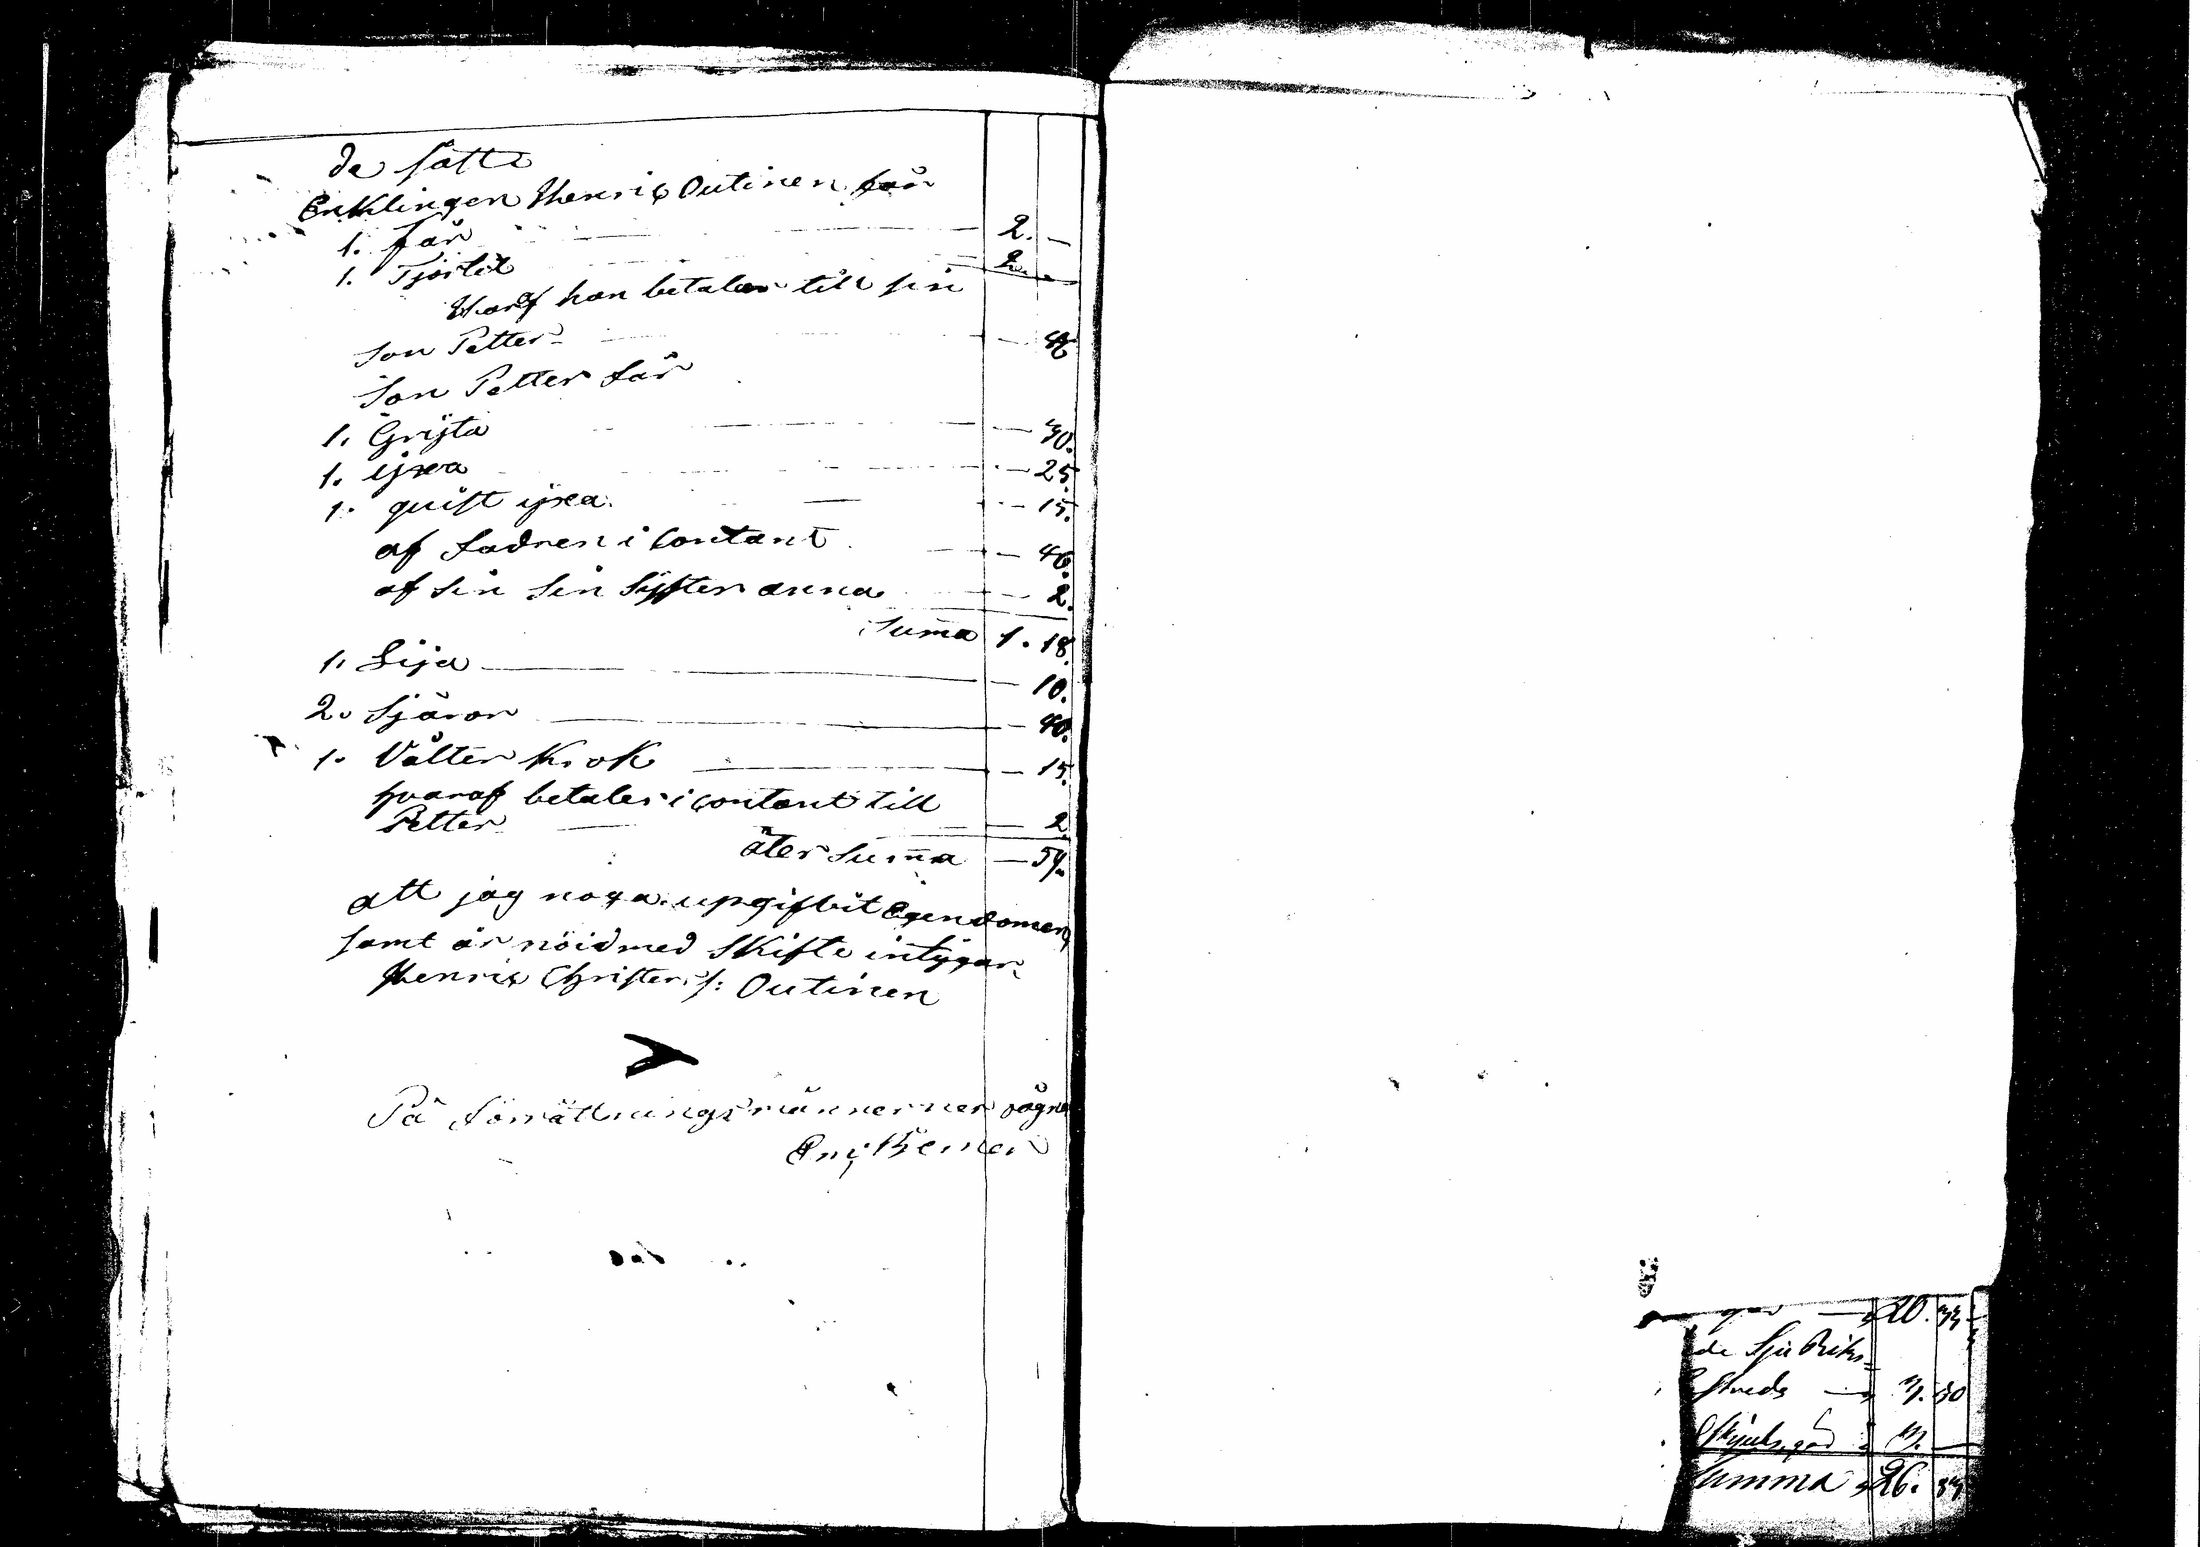 de satte
Enklingen Henric Outinen får
1. får — 2. —
1. Tjortel — 2. —
Haraf han betaler till sin
Son Petter — 46
Son Petter får
1. Grÿta — 30.
1. ÿxa — 25.
1. quist ÿxa — 15.
af fadren i Contant — 46.
af sin sin Sÿster anna — 2.
Summa 1. 18.
1. Lija — 10.
2. Sjäror — 40.
1. Välter Krok — 15.
hvaraf betales i contant till
Petter — 2.
åter Summa — 59.
att jag noga upgifvit Egendomen
samt är nöid med Skifte intÿgar
Henric Christers s: Outinen
På förrättningsmännernes vägna
20. 33
de Sju Riks=
3. 50
Skjutsgd 3. —
umma 26. 83